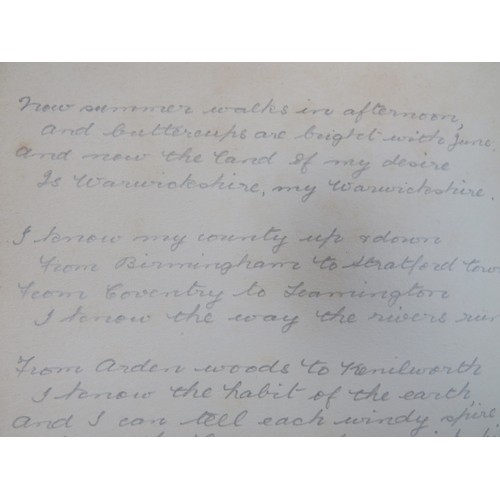 Now summer walks in afternoon,
And buttercups are bright with June,
And now the land of my desire
Is Warwickshire, my Warwickshire.
I know my county up & down
From Birmingham to Stratford tow
From Coventry to Leamington
I know the way the rivers run
From Arden woods to Kenilworth
I know the habit of the earth,
And I can tell each windy spire,